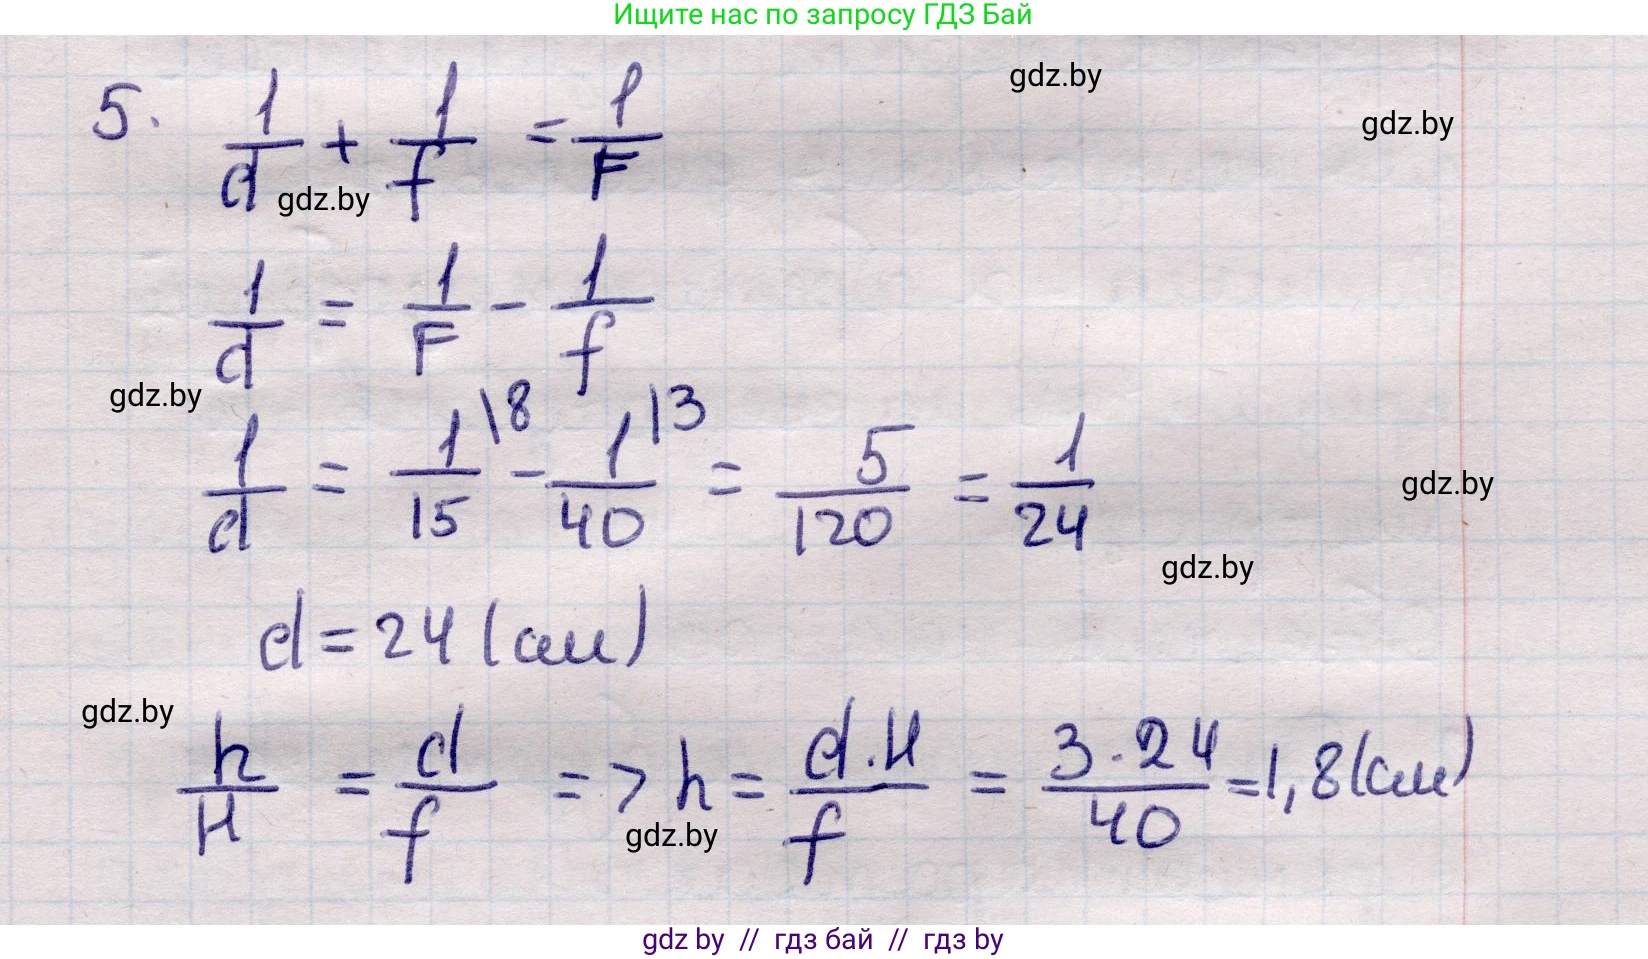 Ищите нас по запросу ГДЗ Бай
gdz.by
gdz.by
5. 1/d + 1/f = 1/F
gdz.by
1/d = 1/F - 1/f
gdz.by
1/d = 1/15 \8 - 1/40 \3 = 5/120 = 1/24
gdz.by
gdz.by
d = 24 (см)
gdz.by
h/H = d/f => h = d·H/f = 3·24/40 = 1,8 (см)
gdz.by
gdz by // гдз бай // гдз by